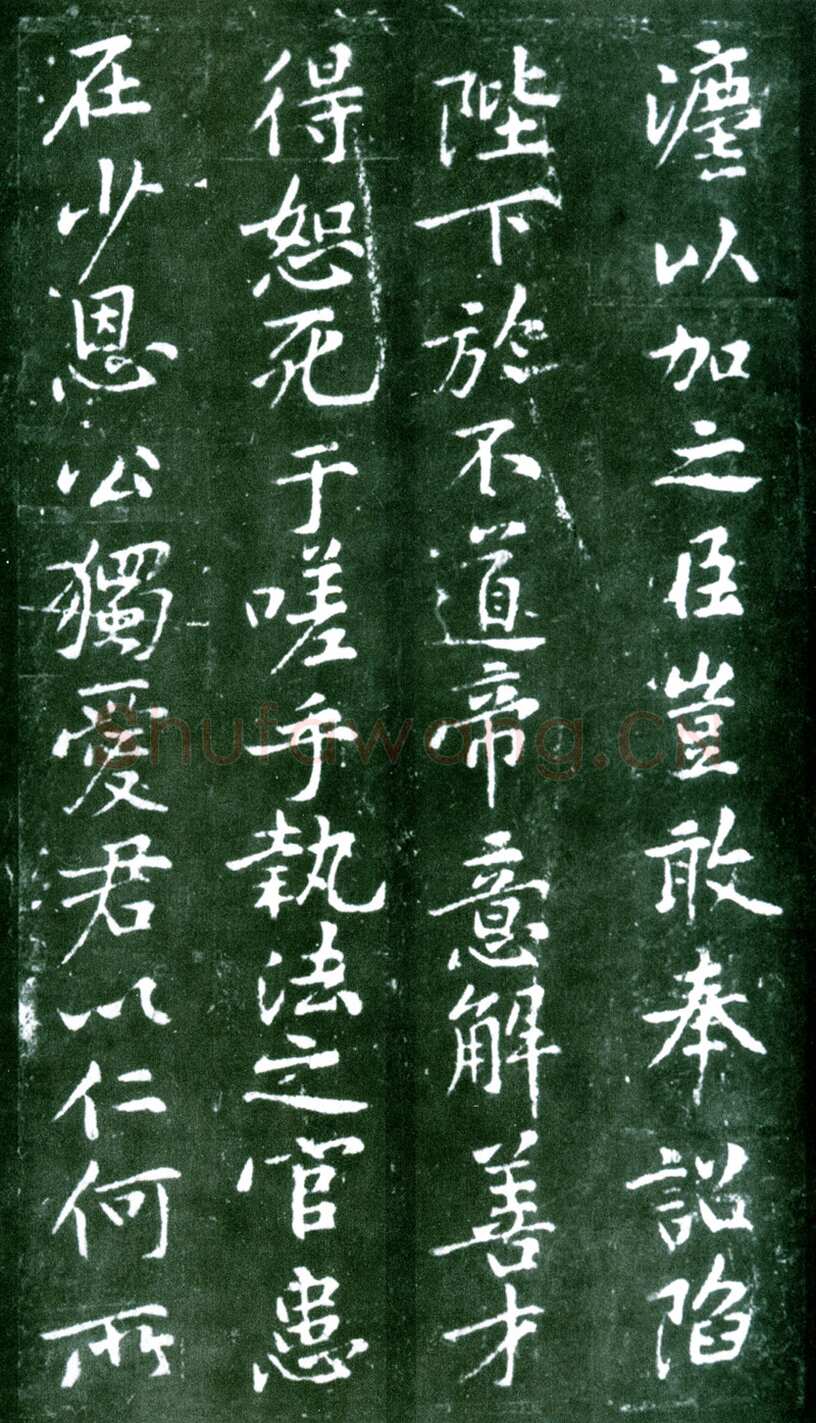 瀍以加之臣豈敢奉詔陷
陛下於不道帝意解善才
得恕死于嗟乎執法之官患
在少恩公獨愛君以仁何所
shufawang.CN